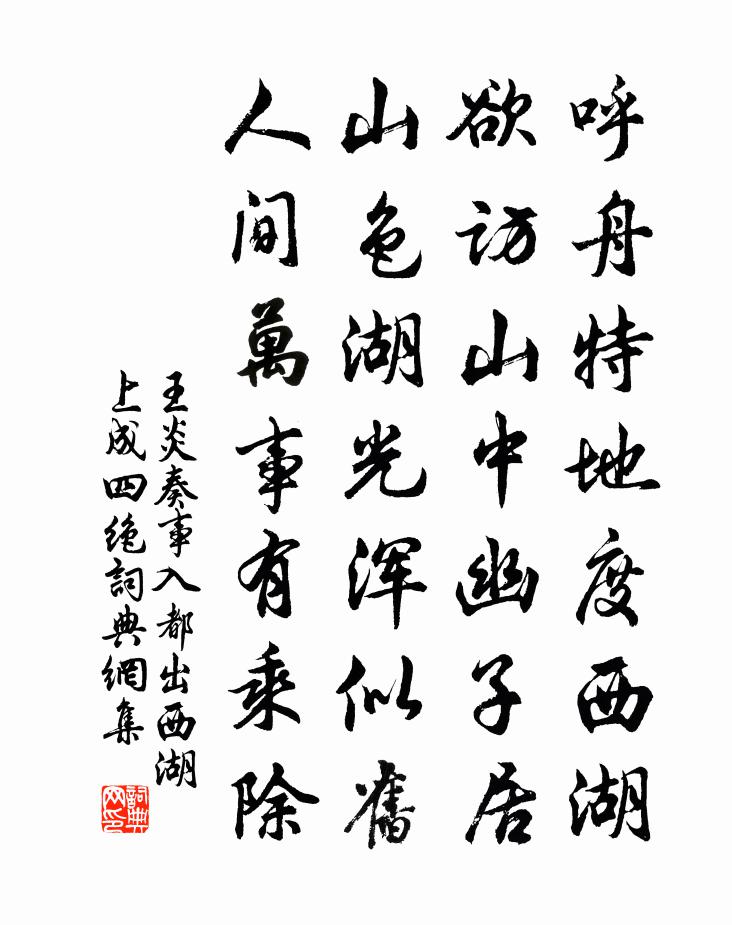 呼舟特地度西湖
欲訪山中幽子居
山色湖光浑似舊
人间萬事有乘除
王炎奏事入都出西湖
上成四绝詞典網集
詞典网印